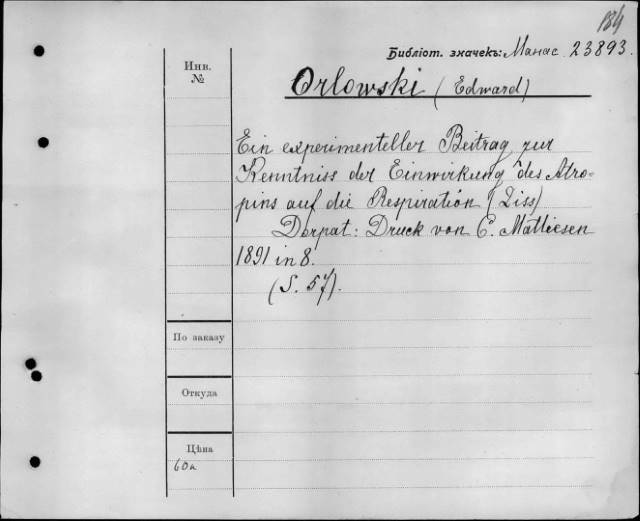 184
Библіот. значекъ: Манас. 23893.
Инв.
№
Orlowski (Edward)
Ein experimenteller Beitrag zur
Kenntniss der Einwirkung des Atro-
pins auf die Respiration (Diss)
Dorpat: Druck von C. Mattiesen
1891 in 8.
(S. 57).
По заказу
Откуда
Цѣна
60к